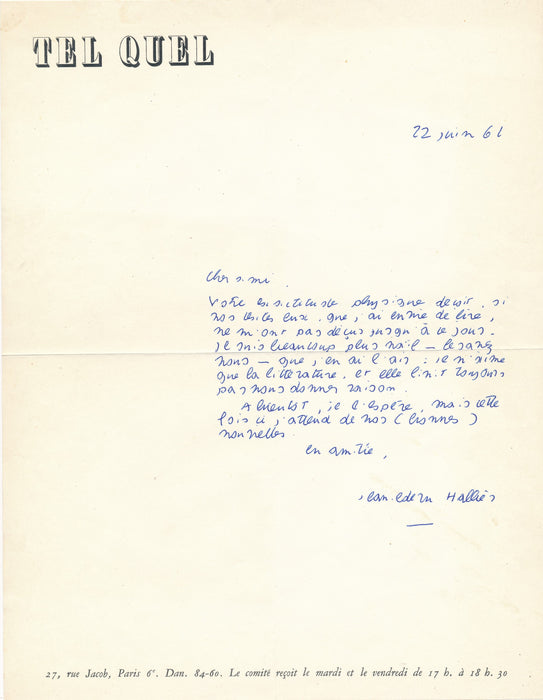 TEL QUEL
22 juin 61
Cher ami
Votre physique devoir, si
nos textes eux, que j'ai envie de lire,
ne m'ont pas déçus jusqu'à ce jour.
Je suis beaucoup plus naïf — le savez
nous — que j'en ai l'air : je n'aime
que la littérature, et elle finit toujours
par nous donner raison.
A bientôt, je l'espère, mais cette
fois ci j'attend de nos (bonnes)
nouvelles.
en amitié,
Jean-edern Hallier
27, rue Jacob, Paris 6e. Dan. 84-60. Le comité reçoit le mardi et le vendredi de 17 h. à 18 h. 30